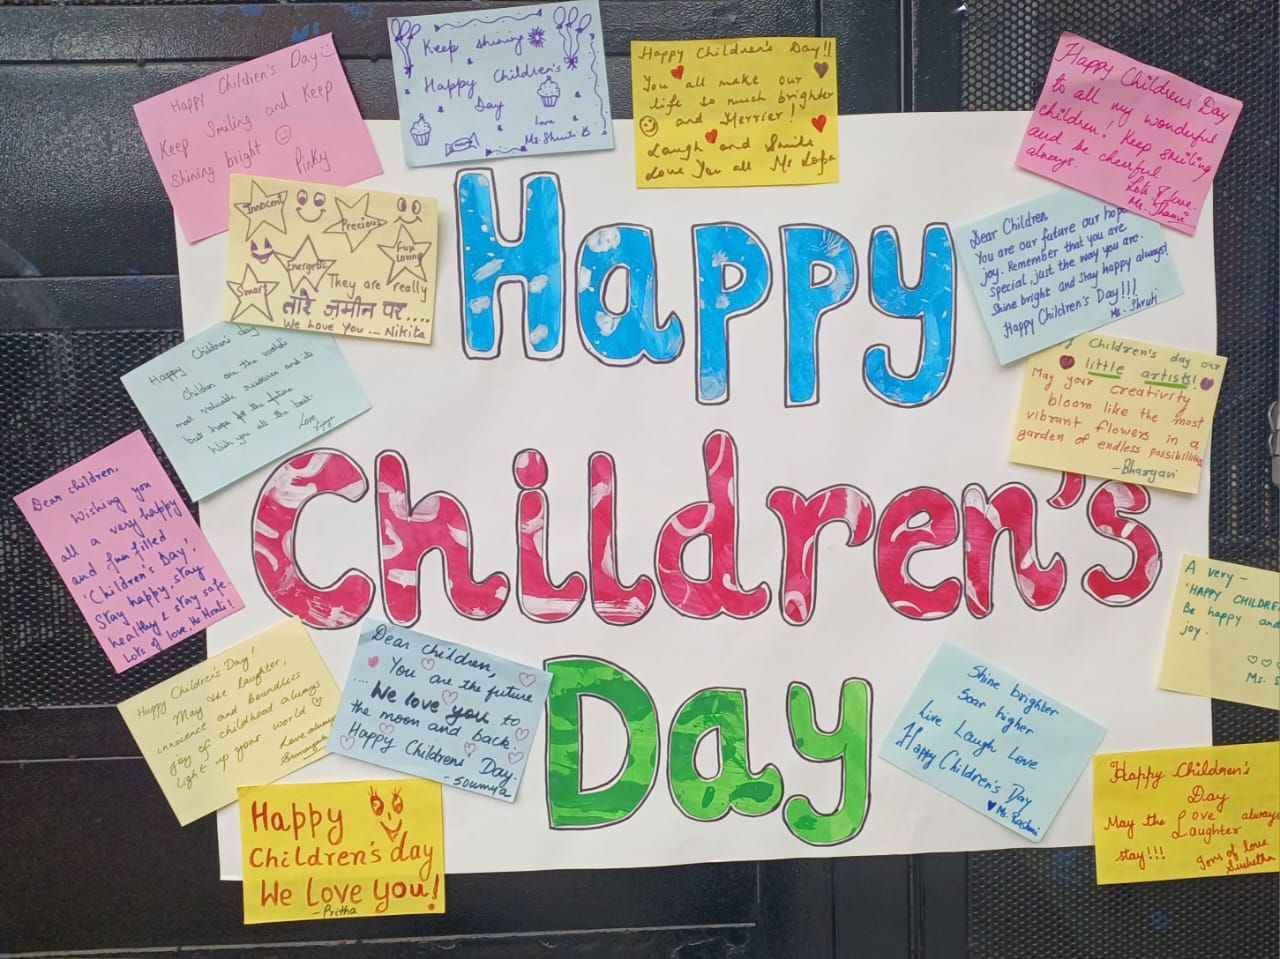 Happy
Children's
Day
Happy Children's Day
Keep Smiling and Keep
Shining bright
Pinky
Keep shining
Happy Children's
Day
Love
Ms. Shruti
Happy Children's Day!!
You all make our
life so much brighter
and Merrier!
Laugh and Smile
Love You all Ms Lopa
Happy Childrens Day
to all my wonderful
children! Keep smiling
and be cheerful
always.
Lots of love.
Ms.
Innocent
Precious
Fun Loving
Energetic
Smart
They are really
तारे ज़मीन पर....
We Love You ... Nikita
Dear Children
You are our future our hope
joy. Remember that you are
special, just the way you are.
Shine bright and stay happy always!
Happy Children's Day!!!
Ms. Shruti
Happy Children's day
Children are the world's
most valuable resource and its
best hope for the future
Wish you all the best.
Love
Vijaya
Children's day our
little artists!
May your creativity
bloom like the most
vibrant flowers in a
garden of endless possibilities
-Bhargavi
Dear children,
Wishing you
all a very happy
and fun filled
'Children's Day'!
Stay happy, stay
healthy & stay safe.
Lots of love,
A very -
'HAPPY CHILDREN
Be happy and
joy.
Ms. S
Happy Children's Day!
May the laughter,
innocence and boundless
joy of childhood always
light up your world
Love always
Dear children,
You are the future
.... We love you to
the moon and back.
Happy Children's Day.
- Soumya
Shine brighter
Soar higher
Live Laugh Love
Happy Children's Day
Ms. Rashmi
Happy
Children's day
We Love you!
-Pritha
Happy Children's
Day
May the Love always
Laughter
stay!!!
Tons of love
Suchetha